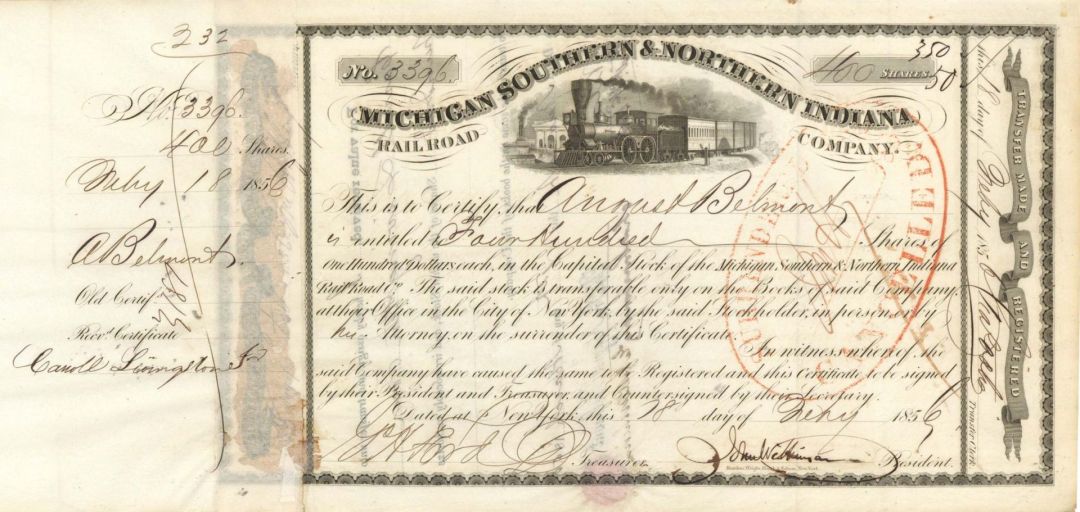 232
No. 3396.
400 Shares.
Feby 18 1856
ABelmont.
Old Certif.
Recvd. Certificate
Caroll Livingston
No. 3396.
400 SHARES.
350
50
MICHIGAN SOUTHERN & NORTHERN INDIANA
RAILROAD COMPANY.
This is to Certify, that August Belmont
is entitled to Four Hundred Shares of
One Hundred Dollars each, in the Capital Stock of the Michigan, Southern & Northern Indiana
Rail Road Co. The said stock is transferable only on the Books of said Company,
at their Office in the City of New York, by the said Stockholder, in person, or by
his Attorney, on the surrender of this Certificate.
In witness whereof, the
said Company have caused the same to be Registered and this Certificate to be signed
by their President and Treasurer, and Countersigned by their Secretary.
Dated at New York, this 18 day of Feby 1856
Treasurer.
John Wilkinson President.
TRANSFER MADE AND REGISTERED
this 18 day Feby 1856
Transfer Clerk
CANCELLED